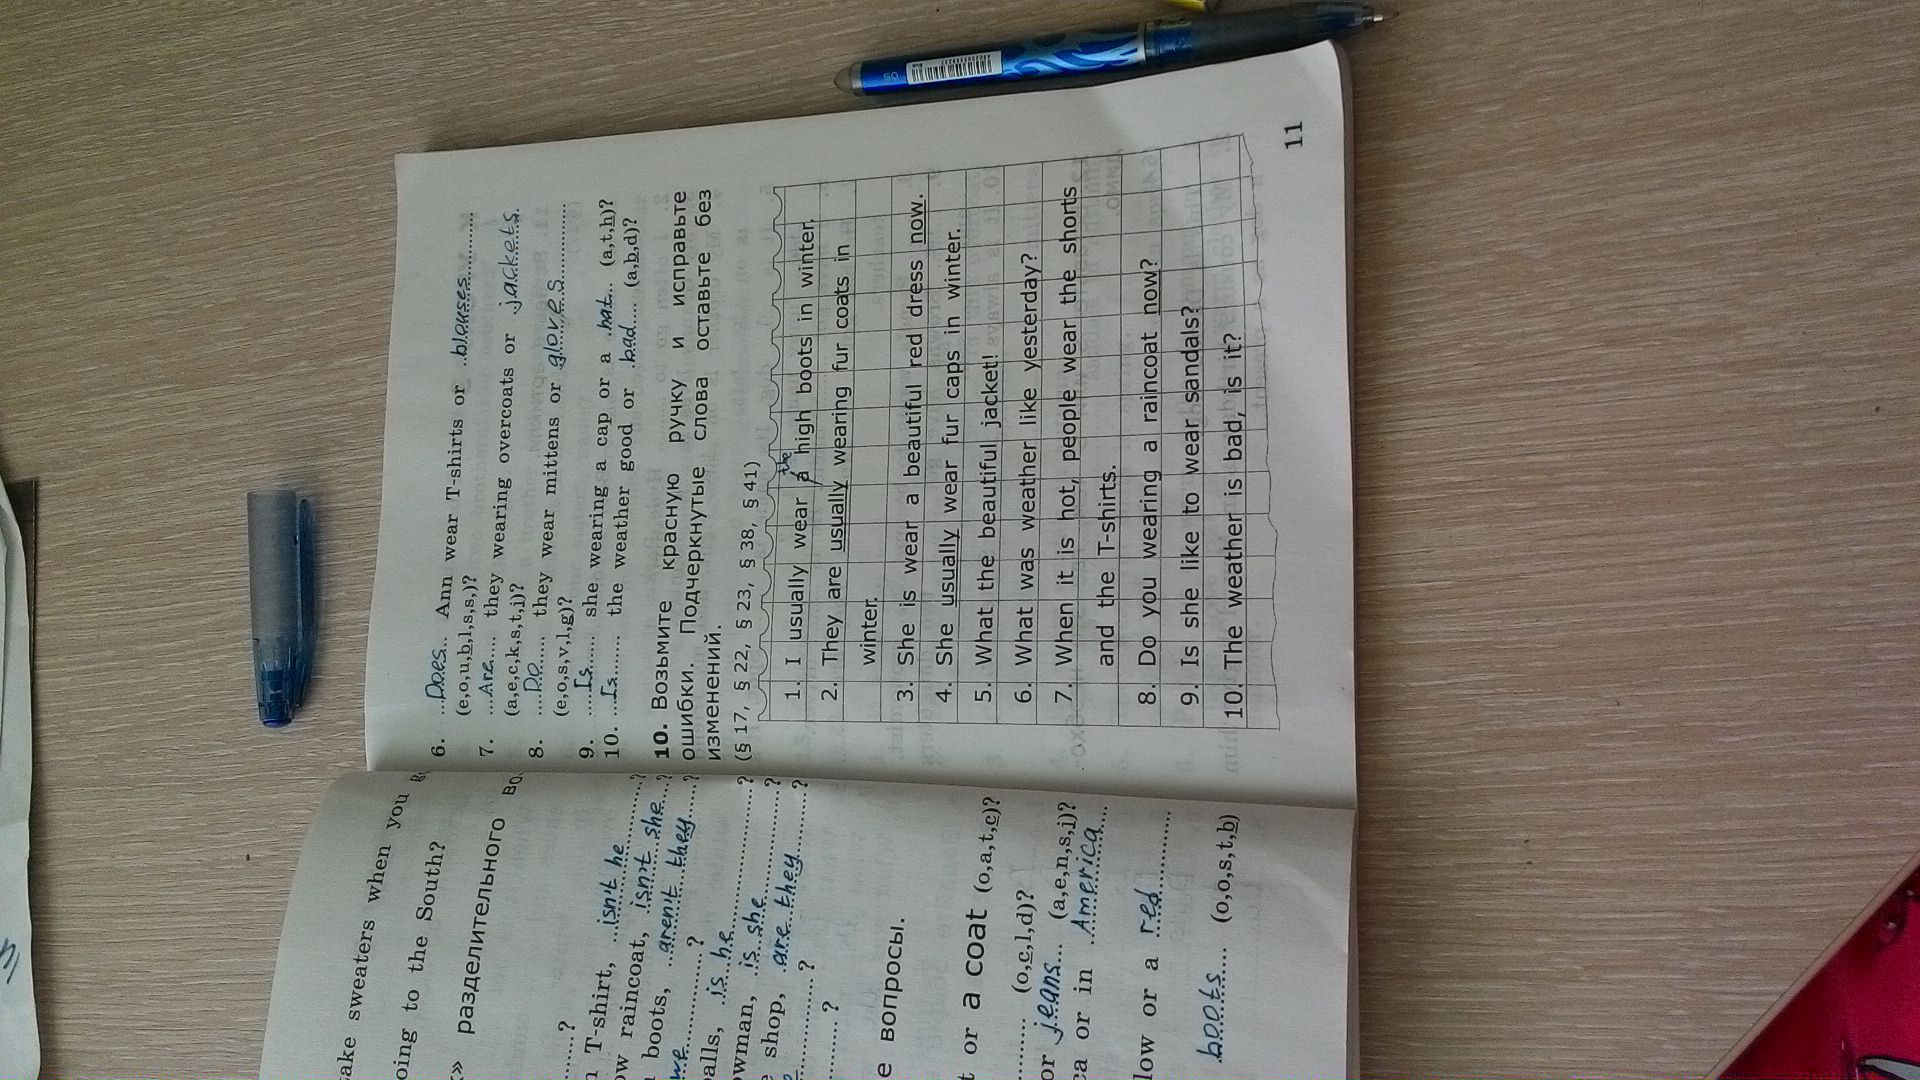 take sweaters when you
going to the South?
разделительного
...?
n T-shirt, isn't he ...?
ow raincoat, isn't she ...?
n boots, aren't they ...?
we ...?
balls, is he ...?
owman, is she ...?
e shop, are they ...?
...?
...?
е вопросы.
t or a coat (o,a,t,c)?
... (o,c,l,d)?
or jeans... (a,e,n,s,j)?
ca or in America...
low or a red
boots... (o,o,s,t,b)
6. ...Does... Ann wear T-shirts or ...blouses...
(e,o,u,b,l,s,s,)?
7. ...Are... they wearing overcoats or jackets.
(a,e,c,k,s,t,j)?
8. ...Do... they wear mittens or gloves...
(e,o,s,v,l,g)?
9. ...Is... she wearing a cap or a .hat... (a,t,h)?
10. ...Is... the weather good or .bad... (a,b,d)?
10. Возьмите красную ручку и исправьте
ошибки. Подчеркнутые слова оставьте без
изменений.
(§ 17, § 22, § 23, § 38, § 41)
the
1. I usually wear a high boots in winter.
2. They are usually wearing fur coats in
winter.
3. She is wear a beautiful red dress now.
4. She usually wear fur caps in winter.
5. What the beautiful jacket!
6. What was weather like yesterday?
7. When it is hot, people wear the shorts
and the T-shirts.
8. Do you wearing a raincoat now?
9. Is she like to wear sandals?
10. The weather is bad, is it?
11
50